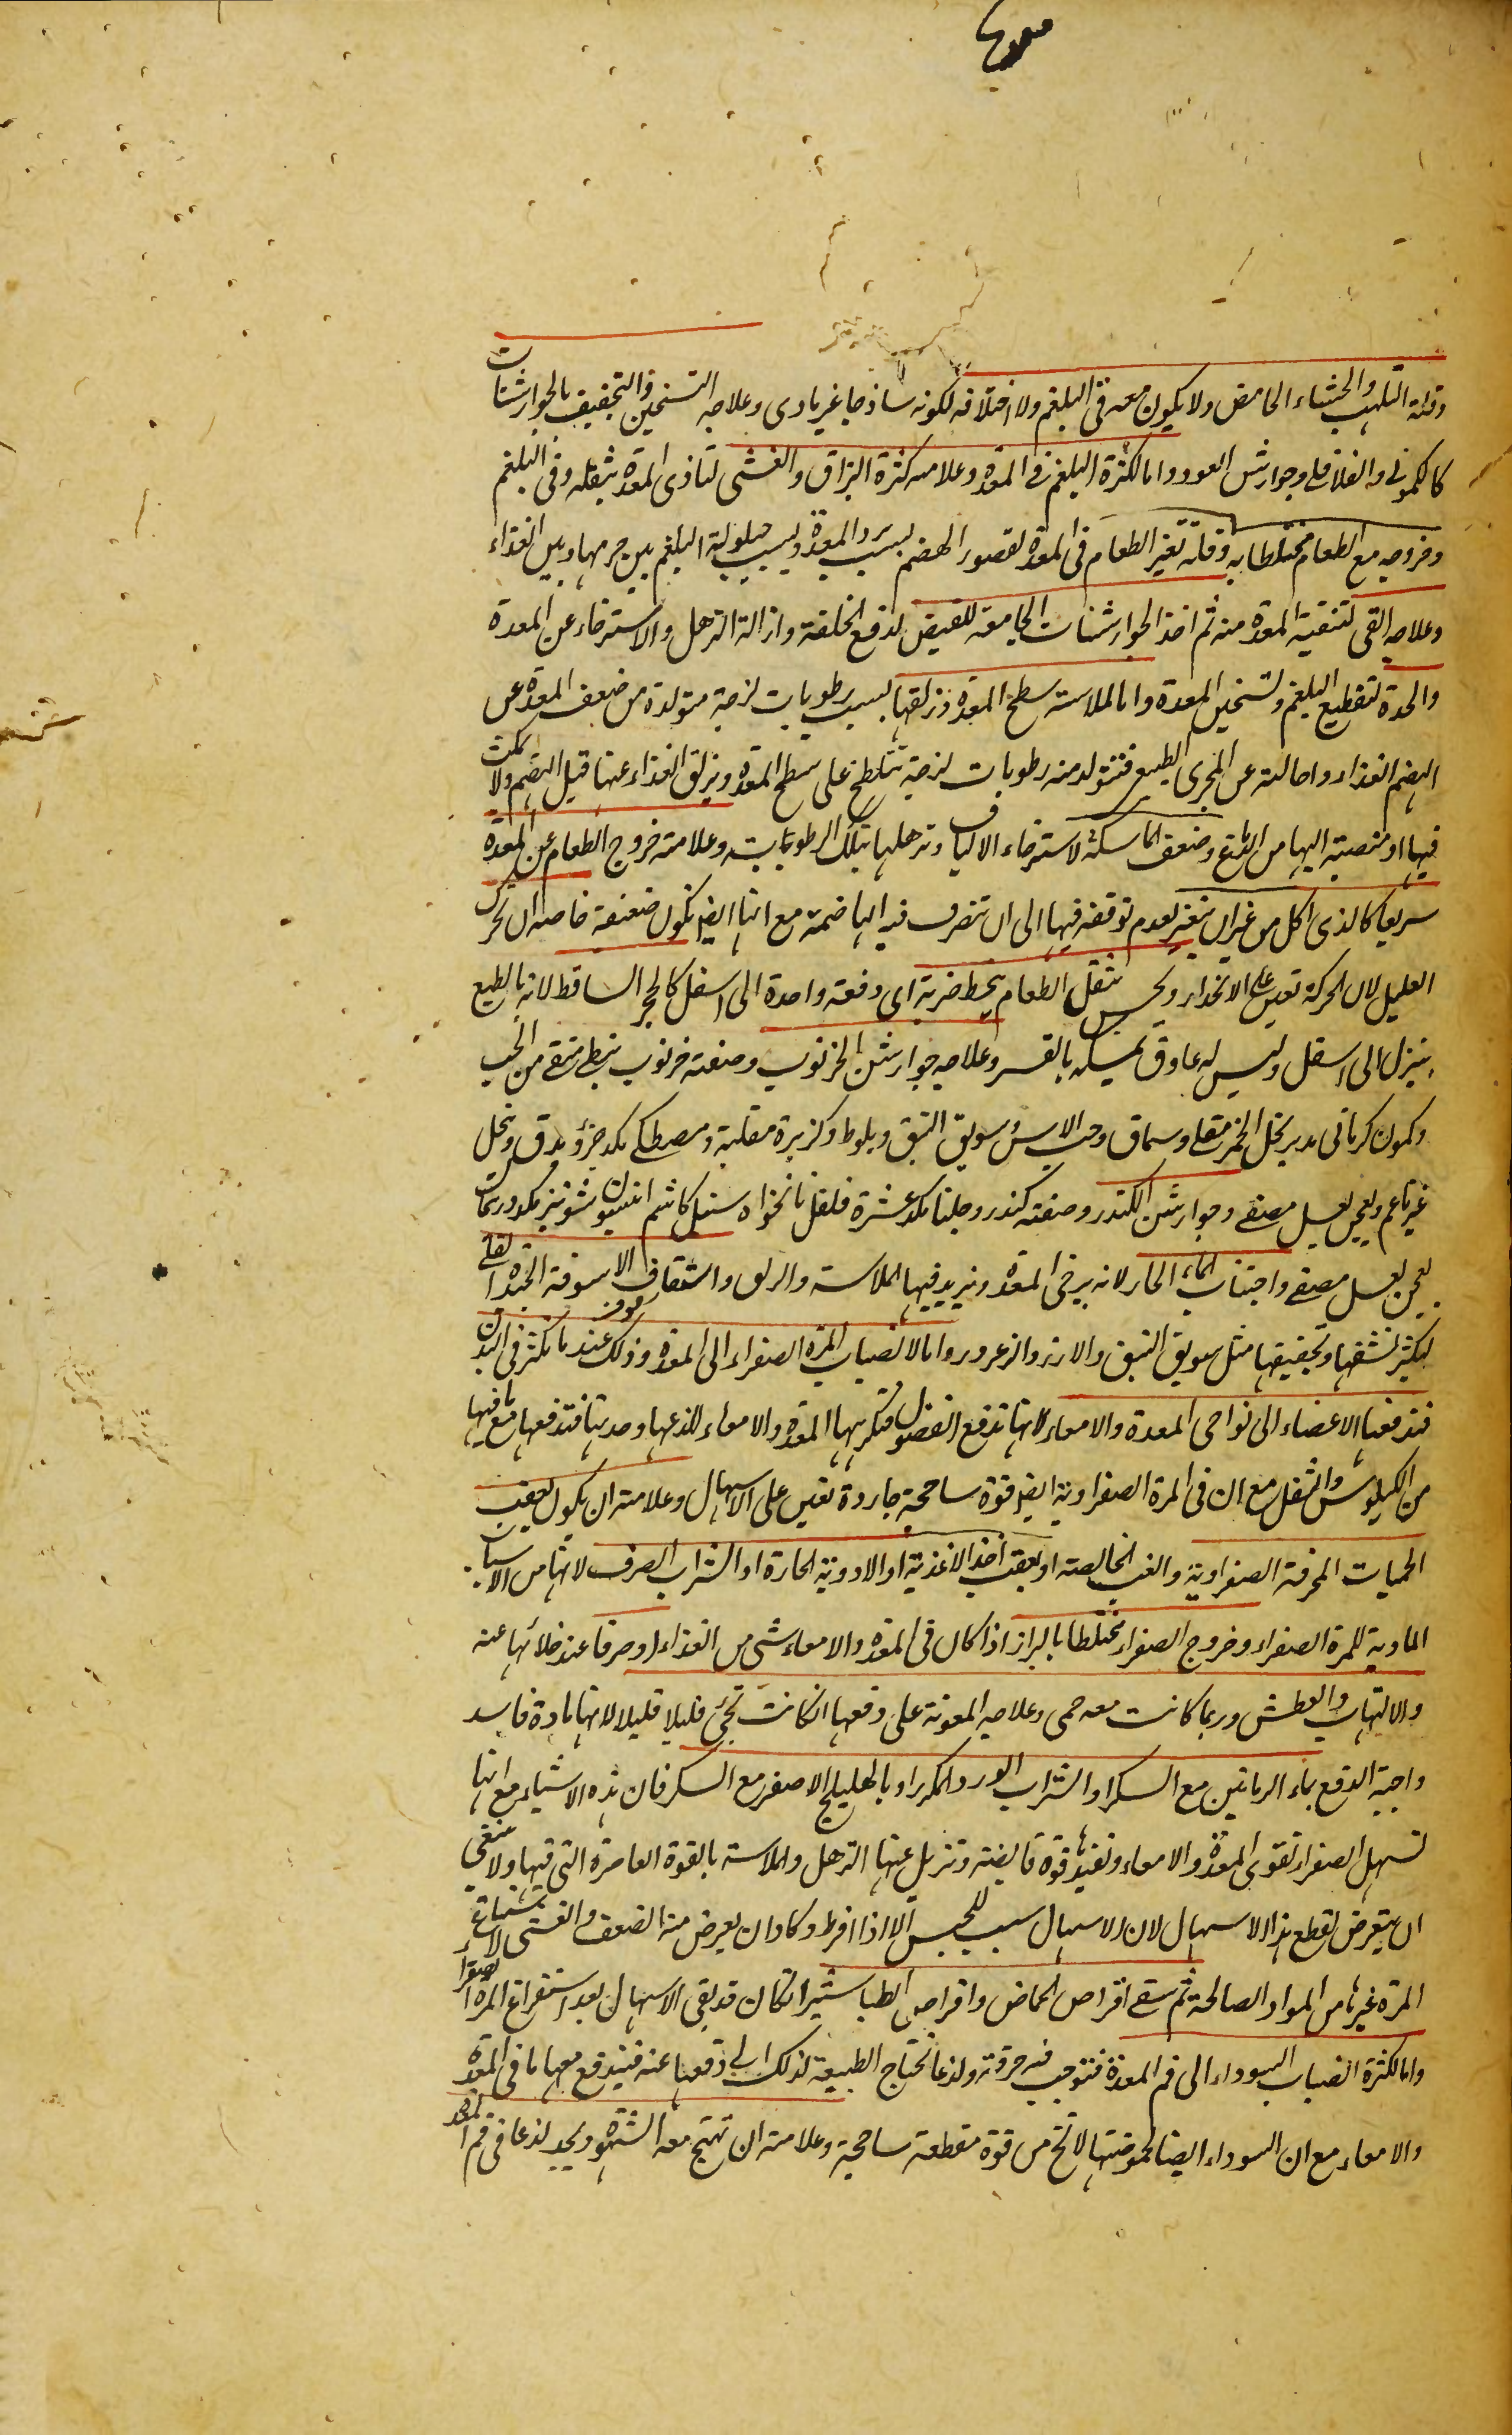 وقلة التلهب والجشاء الحامض ولا يكون معه قئ البلغم ولا اختلافه لكونه ساذجا غير مادى وعلاجه التسخين والتجفيف بالجوارشنات
كالكمونى والفلافلى وجوارشن العود واما لكثرة البلغم فى المعدة وعلامته كثرة البزاق والغشى لتاذى المعدة بثقله وقئ البلغم
وخروجه مع الطعام مختلطا به وقلة تغير الطعام فى المعدة لقصور الهضم بسبب برد المعدة وبسبب حيلولة البلغم بين جرمها وبين الغذاء
وعلاجه القئ لتنقية المعدة منه ثم اخذ الجوارشنات الجامعة للقبض لدفع الخلفة وازالة الترهل والاسترخاء عن المعدة
والحدة لتقطيع البلغم وتسخين المعدة واما لملاسة سطح المعدة وزلقها بسبب رطوبات لزجة متولدة من ضعف المعدة عن
الهضم الغذاء واحالته عن المجرى الطبيعى فتتولد منه رطوبات لزجة تتلطخ على سطح المعدة ويزلق الغذاء عنها قبل الهضم ولا يمكث
فيها او منصبة اليها من الدماغ وضعف الماسكة لاسترخاء الالياف وترهلها بتلك الرطوبات وعلامته خروج الطعام عن المعدة
سريعا كالذى اكل من غير ان يتغير لعدم توقفه فيها الى ان تتصرف فيه الهاضمة مع انها ايضا تكون ضعيفة خاصة ان تحرك
العليل لان الحركة تعين على الانحدار ويحس بثقل الطعام ينحط ضربة اى دفعة واحدة الى اسفل كالحجر الساقط لانه بالطبع
ينزل الى اسفل وليس له عاوق يمسكه بالقسر وعلاجه جوارشن الخرنوب وصفته خرنوب نبطى منقى من الحب
وكمون كرمانى مدبر بخل الخمر مقلى وسماق وحب الاس وسويق النبق وبلوط وكزبرة مقلية ومصطكى مكد جزؤ يدق وينخل
غير ناعم ويعجن بعسل مصفى وجوارشن الكندر وصفته كندر وجلنار مكد عشرة فلفل نانخواه سنبل كاشم انيسون شونيز مكد درهمان
يعجن بعسل مصفى واجتناب الماء الحار لانه يرخى المعدة ويزيد فيها الملاسة والزلق واستفاف الاسوفة الجيدة القلى
ليكثر نشفها وتجفيفها مثل سويق النبق والارز والزعرور واما لانصباب المرة الصفراء الى المعدة وذلك عند ما تكثر فى البدن
فتدفعها الاعضاء الى نواحى المعدة والامعاء لانها تدفع الفضول فتكرهها المعدة والامعاء للذعها وحدتها فتدفعها مع ما فيها
من الكيلوس والثفل مع ان فى المرة الصفراوية ايضا قوة ساحجة جاردة تعين على الاسهال وعلامته ان يكون بعقب
الحميات المحرقة الصفراوية والغب الخالصة او بعقب اخذ الاغذية او الادوية الحارة او الشراب الصرف لانها من الاسباب
المادية للمرة الصفراء وخروج الصفراء مختلطا بالبراز اذا كان فى المعدة والامعاء شئ من الغذاء او صرفا عند خلائها عنه
والالتهاب والعطش وربما كانت معه حمى وعلاجه المعونة على دفعها ان كانت تجئ قليلا قليلا لانها مادة فاسد
واجبة الدفع بماء الرمانين مع السكر او الشراب الورد المكرر او بالهليلج الاصفر مع السكر فان هذه الاشياء مع انها
تسهل الصفراء تقوى المعدة والامعاء وتفيدها قوة قابضة وتزيل عنها الترهل والملاسة بالقوة العاصرة التى فيها ولا ينبغى
ان يتعرض لقطع هذا الاسهال لان الاسهال سبب للحبس الا اذا افرط وكاد ان يعرض منه الضعف والغشى لاستتباع
المرة غيرها من المواد الصالحة ثم سقى اقراص الحماض واقراص الطباشير ان كان قد بقى الاسهال بعد استفراغ المرة الصفراء
واما لكثرة انصباب السوداء الى فم المعدة فتوجب فيه حرقة ولذعا تحتاج الطبيعة لذلك الى دفعها عنه فيندفع معها ما فى المعدة
والامعاء مع ان السوداء ايضا لحموضتها لا تخ من قوة مقطعة ساحجة وعلامته ان تهيج معه الشهوة ويجد لذعا فى فم المعدة